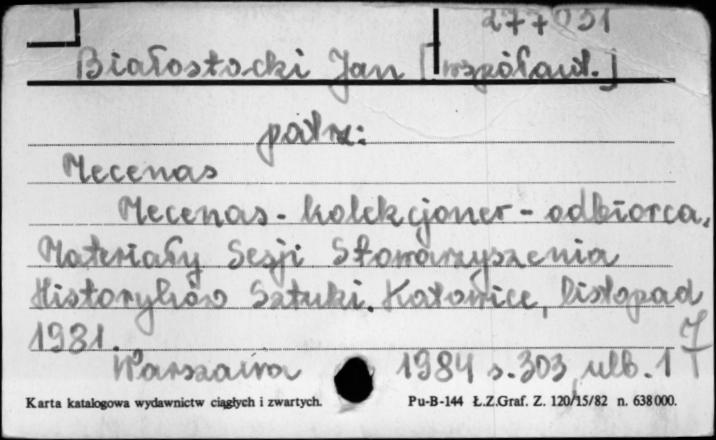 277031
Białostocki Jan [współaut.]
patrz:
Mecenas
Mecenas - kolekcjoner - odbiorca.
Materiały Sesji Stowarzyszenia
Historyków Sztuki. Katowice, listopad
1981.
Warszawa 1984 s. 303, nlb. 1
Karta katalogowa wydawnictw ciągłych i zwartych. Pu-B-144 Ł.Z.Graf. Z. 120/15/82 n. 638000.